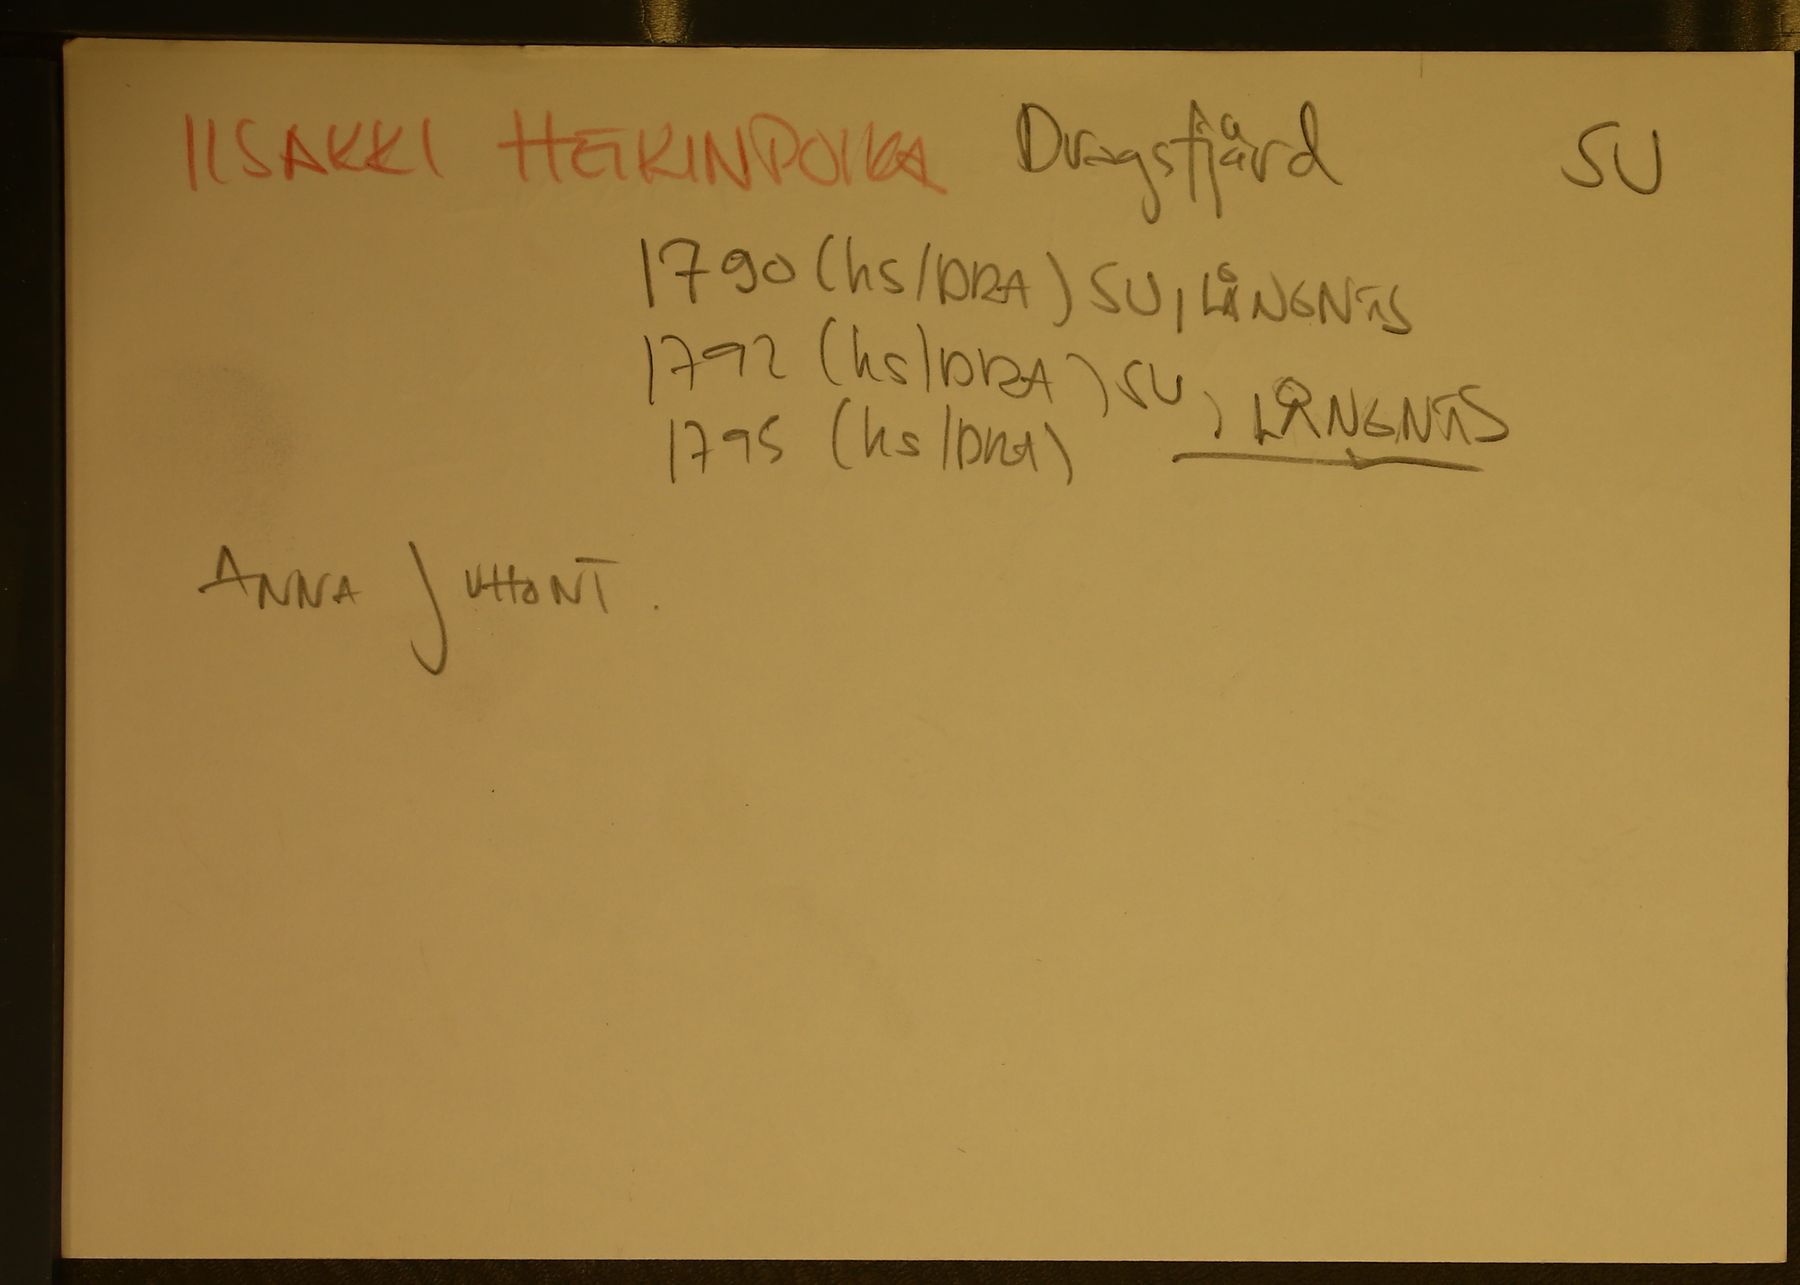 IISAKKI HEIKINPOIKA Dragsfjärd SU
1790 (hs/DRA) SU, LÅNGNÄS
1792 (hs/DRA) SU, LÅNGNÄS
1795 (hs/DRA)
ANNA JUHONT.